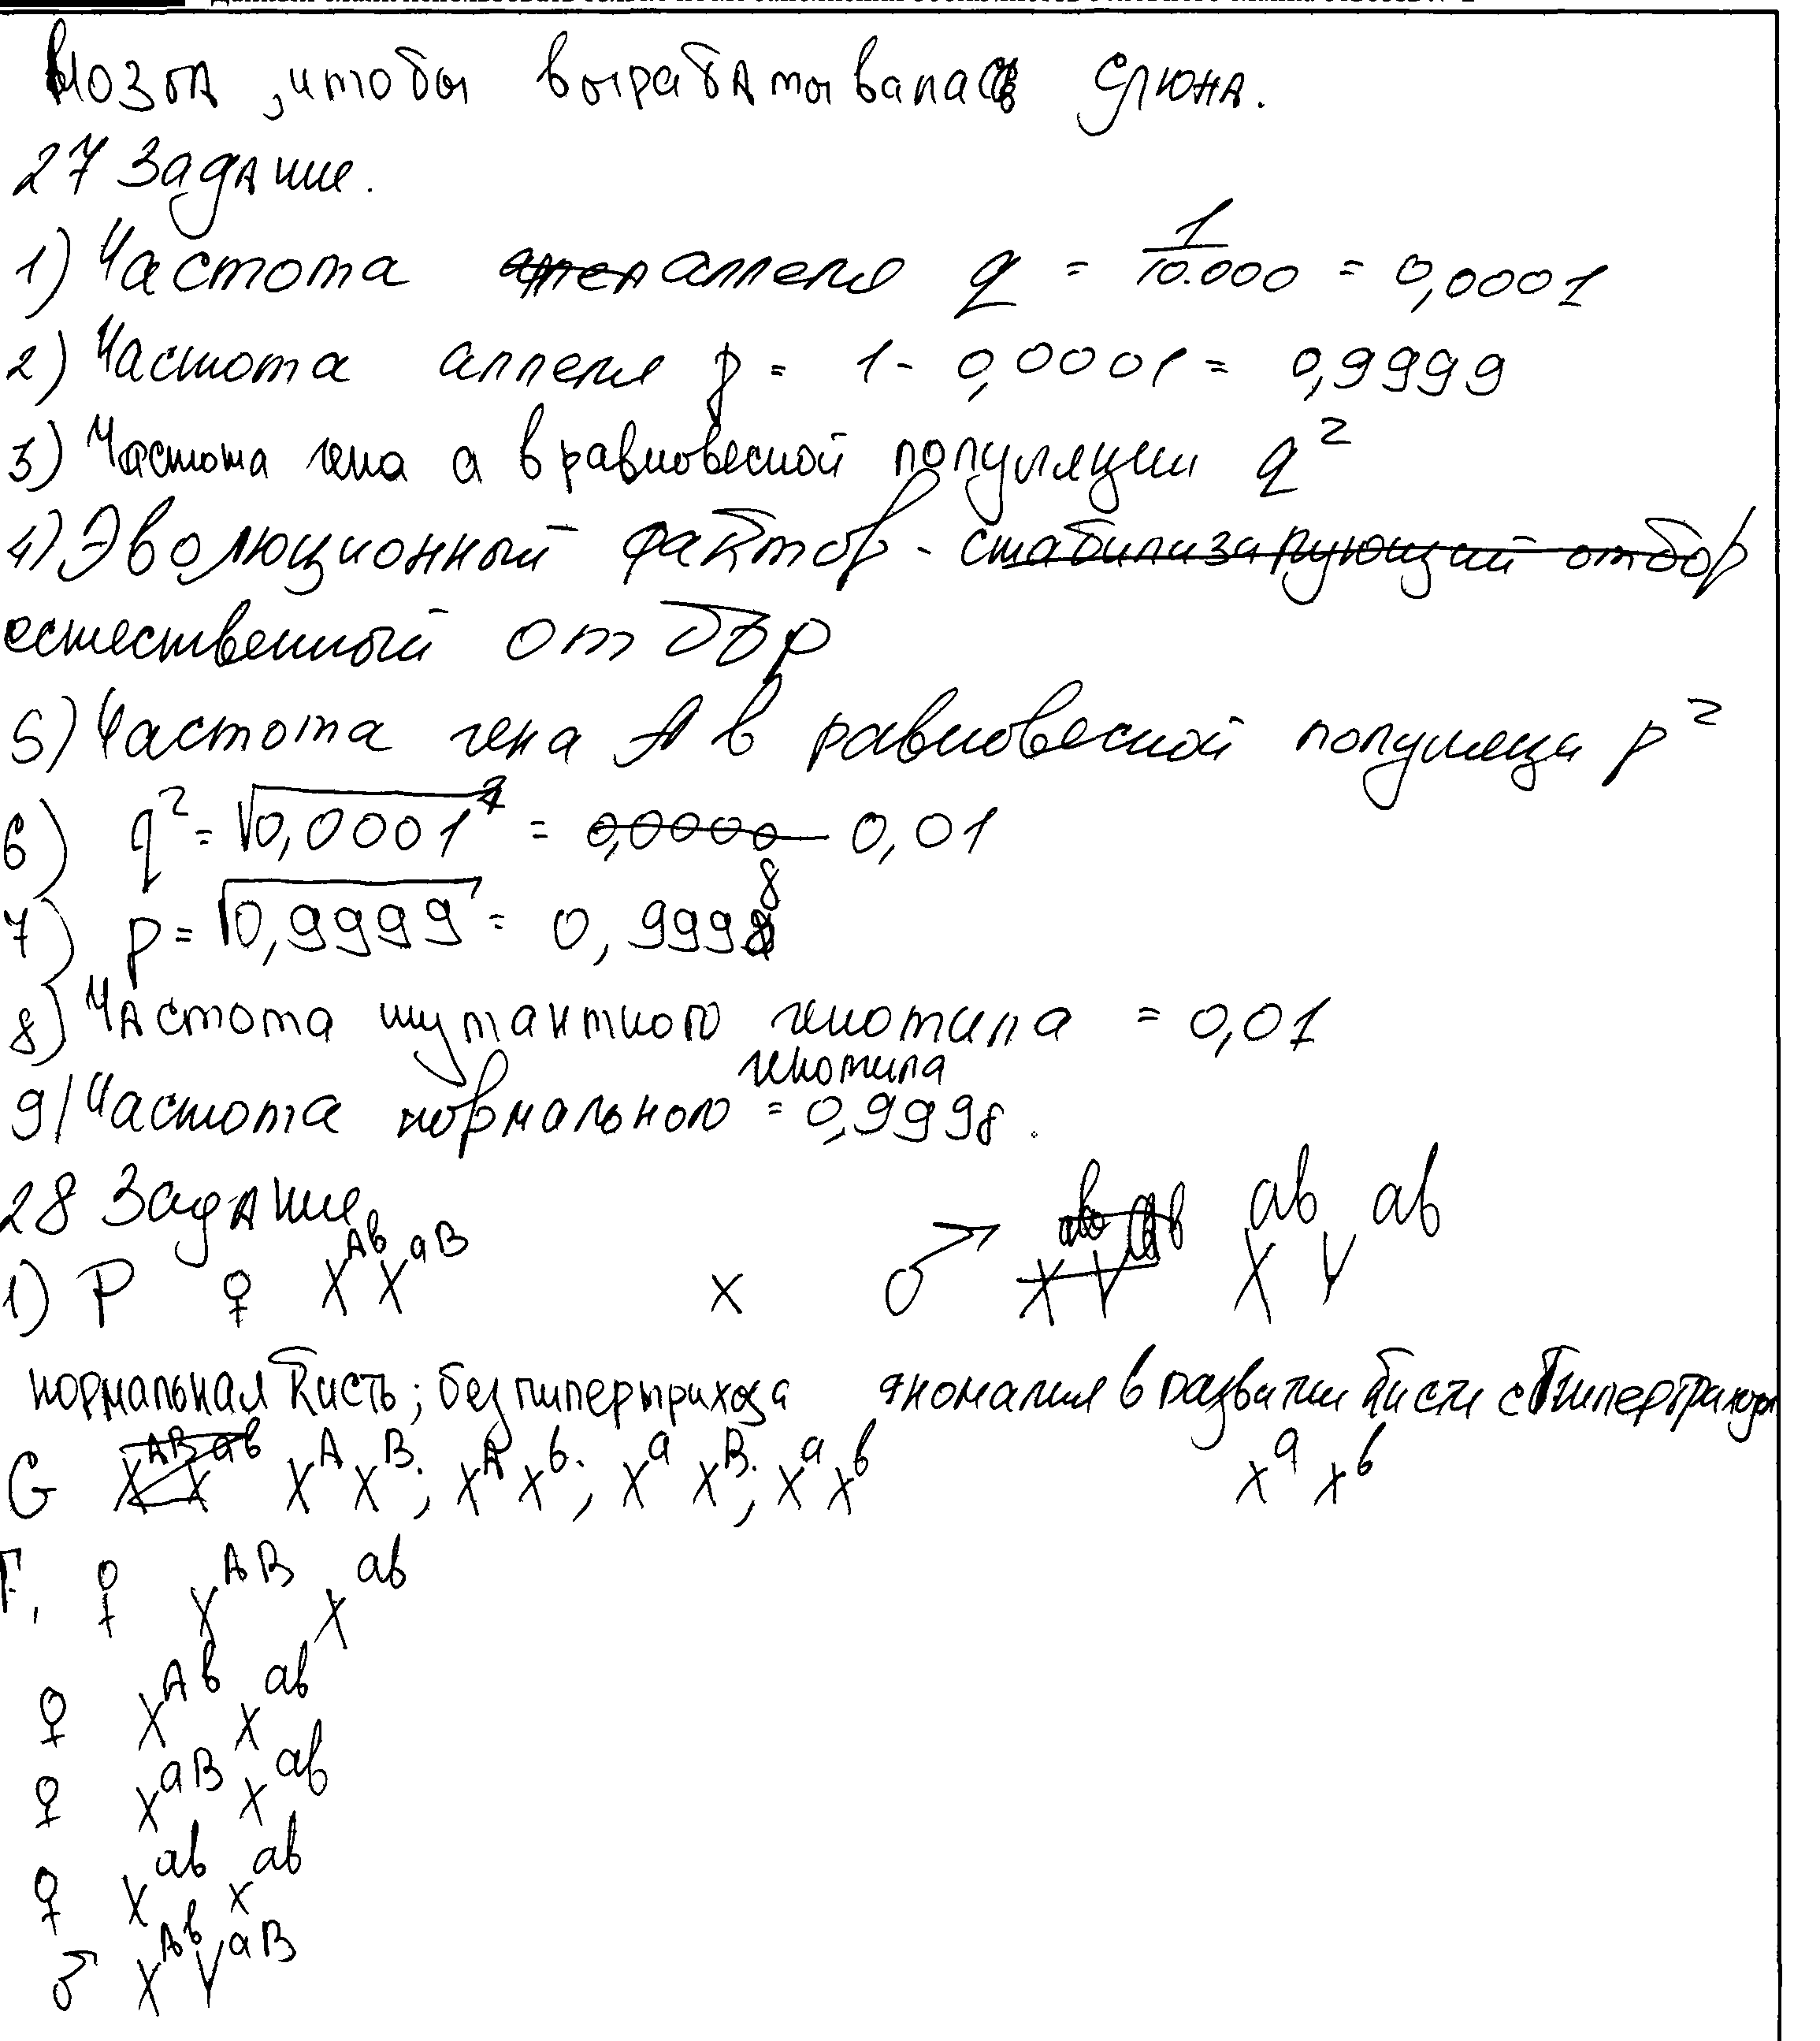 мозга, чтобы вырабатывалась слюна.
27 Задание.
1) Частота аллеля q = 1/10.000 = 0,0001
2) Частота аллеля p = 1 - 0,0001 = 0,9999
3) Частота гена a в равновесной популяции q²
4) Эволюционный фактор - стабилизарующий отбор
естественный отбор
5) Частота гена A в равновесной популяци p²
6) q² = √0,0001² = 0,0000 0,01
7) p = √0,9999 = 0,9998
8) Частота мутантного генотипа = 0,01
9) Частота нормального генотипа = 0,9998.
28 Задание
1) P ♀ X^Ab X^aB x ♂ X^ab Y^ab
нормальная кисть; без гипертрихоза аномалия в развитии кисти с гипертрихоз
G X^AB X^ab X^A X^B; X^A X^b; X^a X^B; X^a X^b X^a X^b
F₁ ♀ X^AB X^ab
♀ X^Ab X^ab
♀ X^aB X^ab
♀ X^ab X^ab
♂ X^Ab Y^aB